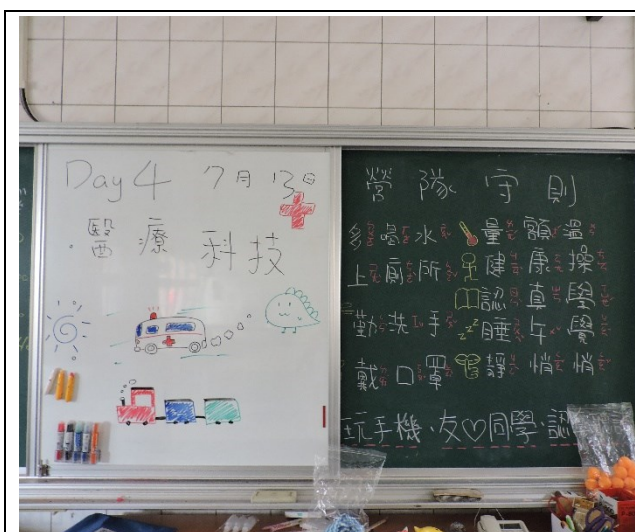 Day 4 7月13日
醫療科技
營隊守則
多喝水 量額溫
上廁所 健康操
勤洗手 認真學
zzz 睡午覺
戴口罩 靜悄悄
玩手機、友♡同學、認